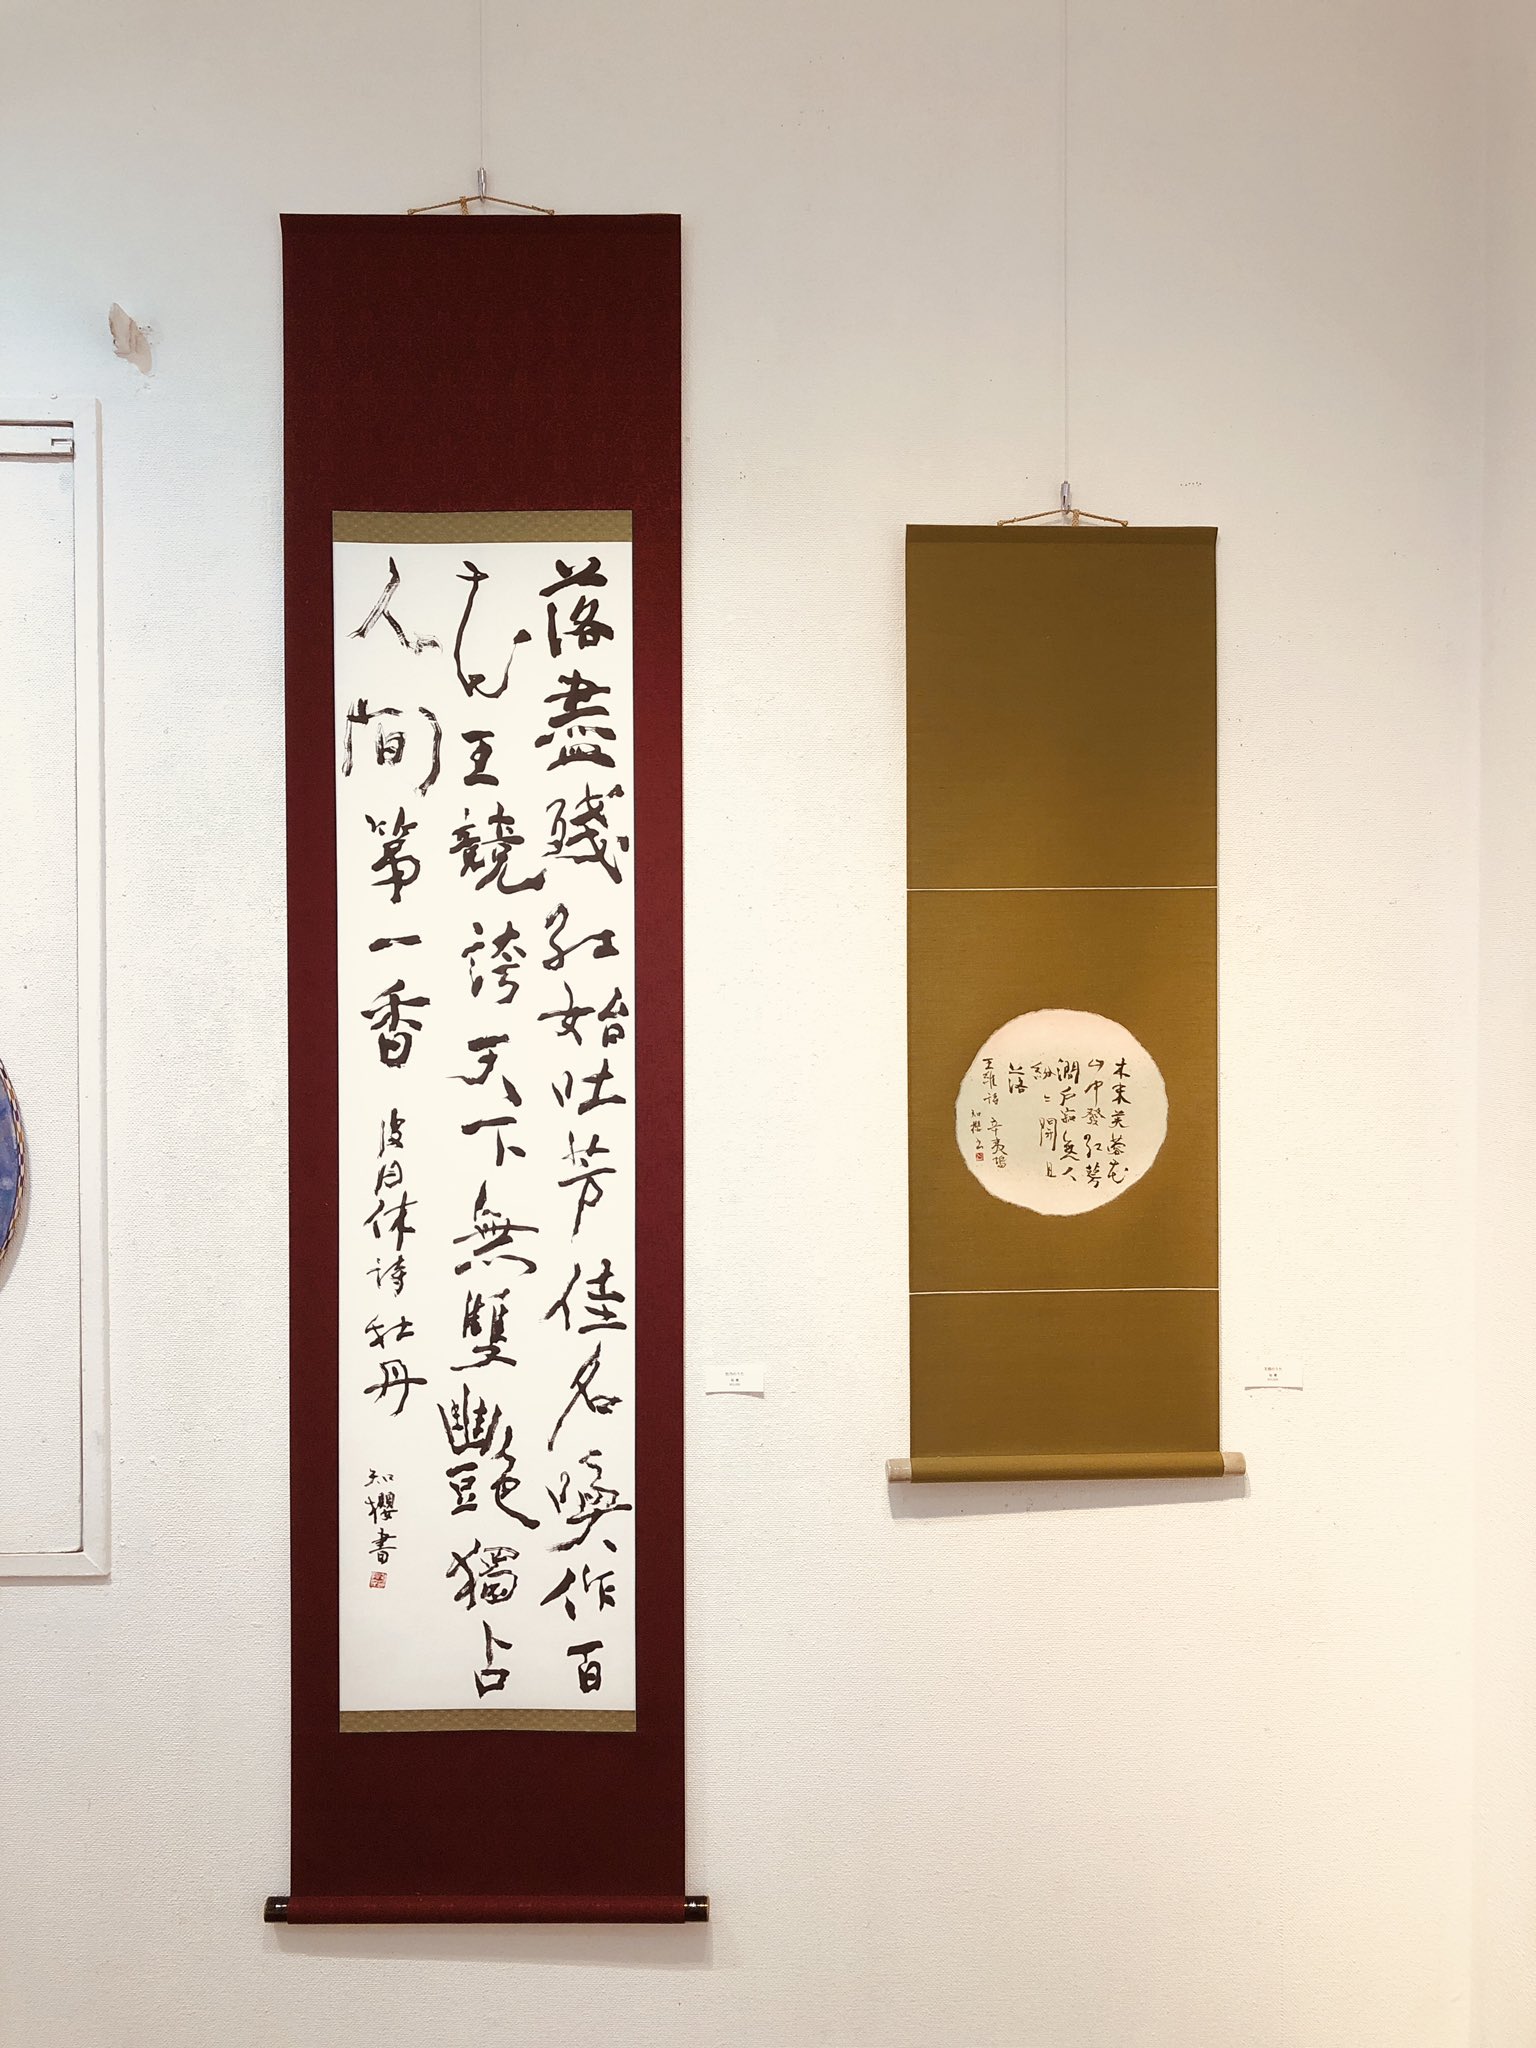 落盡殘紅始吐芳佳名喚作百
花王競誇天下無雙艷獨占
人間第一香 皮日休詩 牡丹 知櫻書
木末芙蓉花
山中發紅萼
澗戶寂無人
紛々開且
落
王維詩 辛夷塢
知櫻書